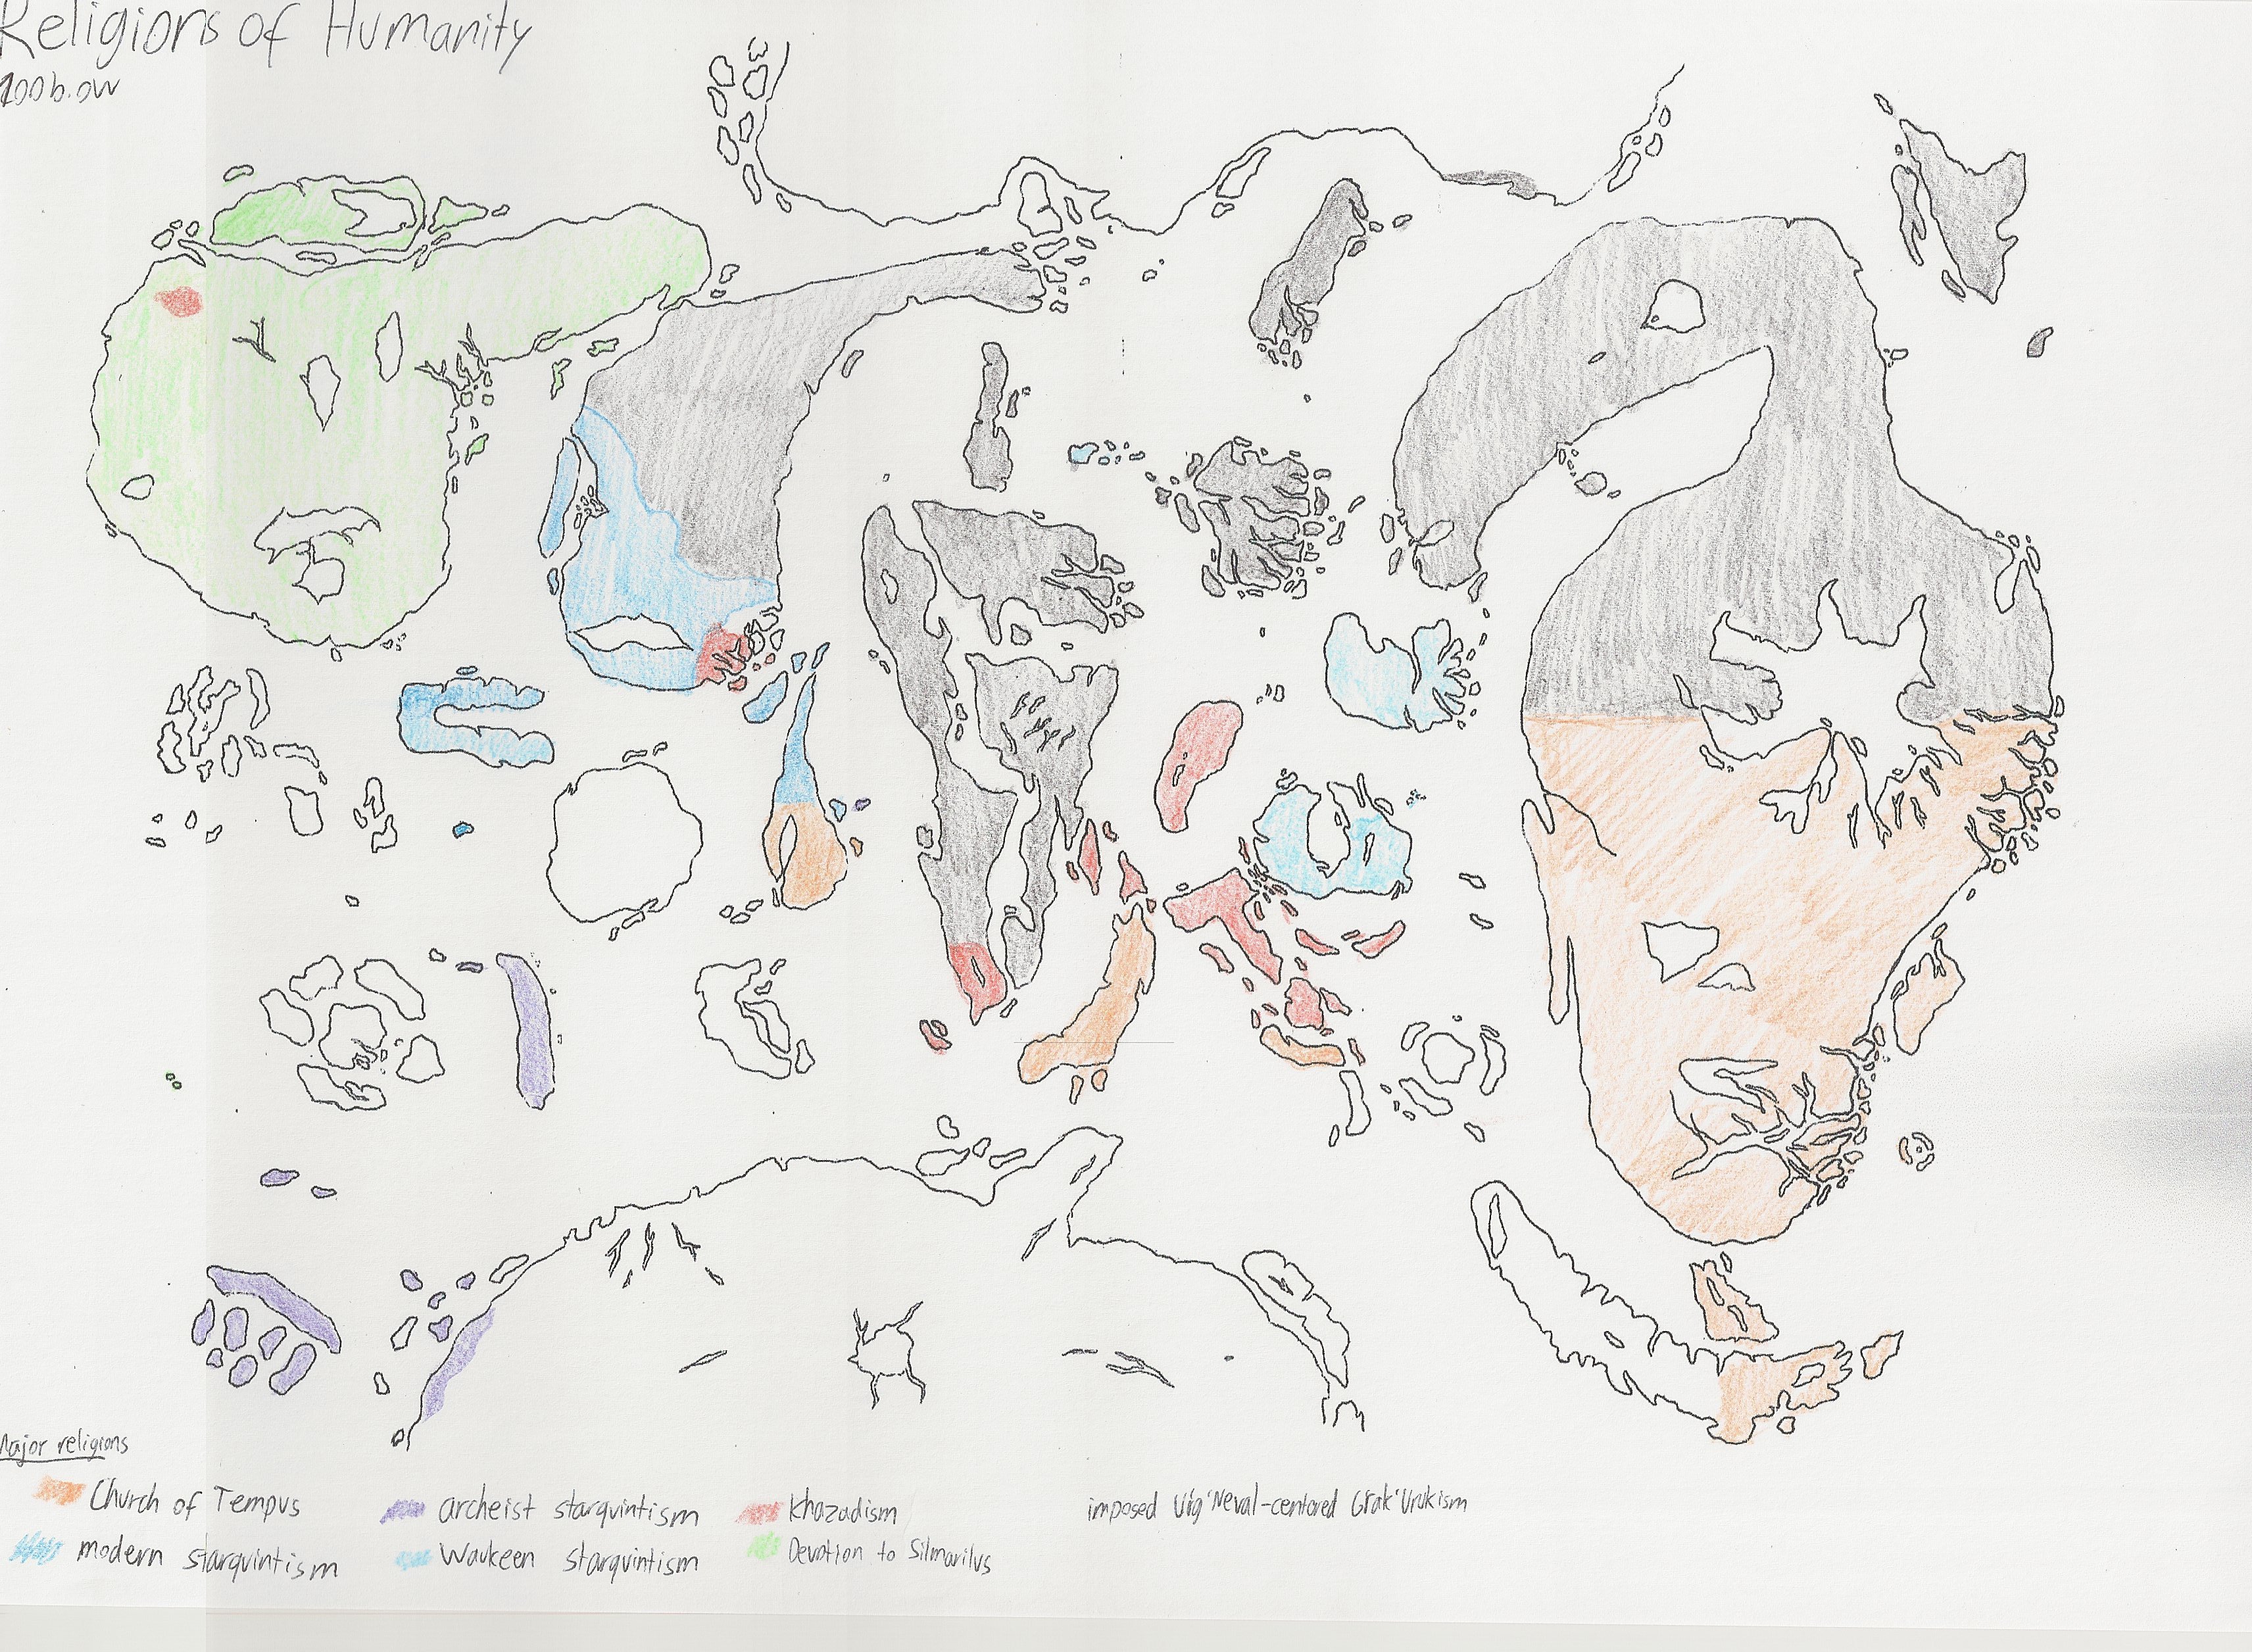 Religions of Humanity
100b.ow
Major religions
Church of Tempus
modern starquintism
archeist starquintism
Waukeen starquintism
Khazadism
Devotion to Silmarilus
imposed Uig'Neval-centered Grak'Urukism